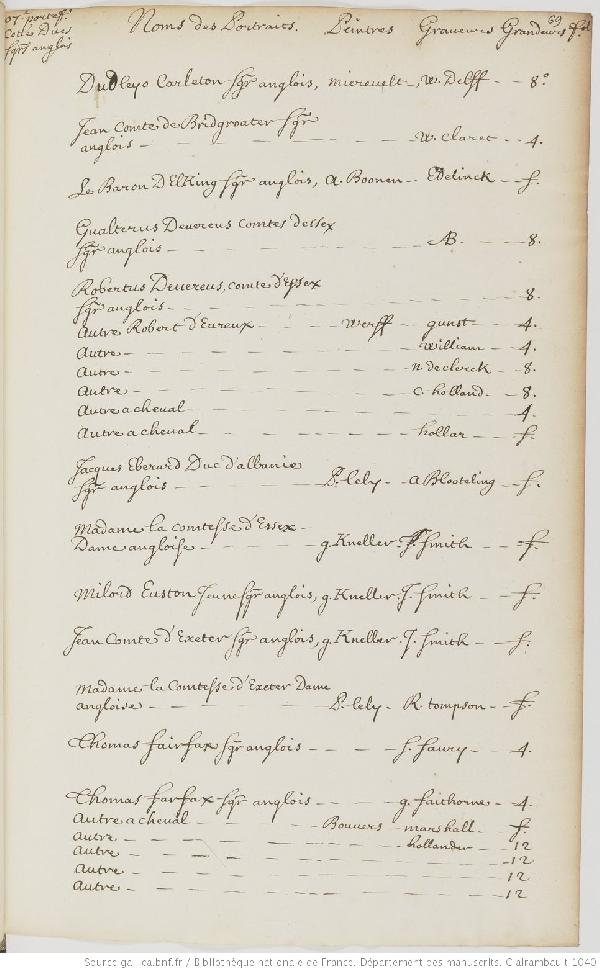 07e porteff.
Noms des Portraits. Peintres Graveurs Grandeurs
69
Sgrs anglois
DuDleyo Carleton Sgr anglois, miervelt, W. Delff - - 8o
Jean Comte de Bridgwater Sgr
anglois - W. Claret - - 4.
Le Baron D'Elking Sgr anglois, A. Boonen - Edelinck - f.
Gualterus Devereus Comtes d'essex
Sgr anglois - AB - 8.
Robertus Devereus, comte d'Essex
Sgr anglois - 8.
Autre Robert d'Eureux - Werff - gunst - 4.
Autre - William - 4.
Autre - n. de clerck - 8.
Autre - C. holland - 8.
Autre a cheval - 4.
Autre a cheval - hollar - f.
Jacques Eberard Duc d'albanie
Sgr anglois - P. Lely - A Blooteling - f.
Madame la comtesse d'Essex -
Dame angloise - g. Kneller - J. Smith - - f.
Milord Euston Jeune Sgr anglois, g. Kneller. J. Smith - - f.
Jean Comte d'Exeter Sgr anglois, g. Kneller. J. Smith - - f.
Madame la Comtesse d'Exeter Dame
angloise - P. Lely - R. tompson - - f.
Thomas fairfax Sgr anglois - 4.
Thomas farfax Sgr anglois - g. faithorne - 4.
Autre a cheval - Bouvers - marshall - f.
Autre - hollander - - 12
Autre - 12
Autre - 12
Autre - 12
Source gallica.bnf.fr / Bibliothèque nationale de France. Département des manuscrits. Clairambault 1040